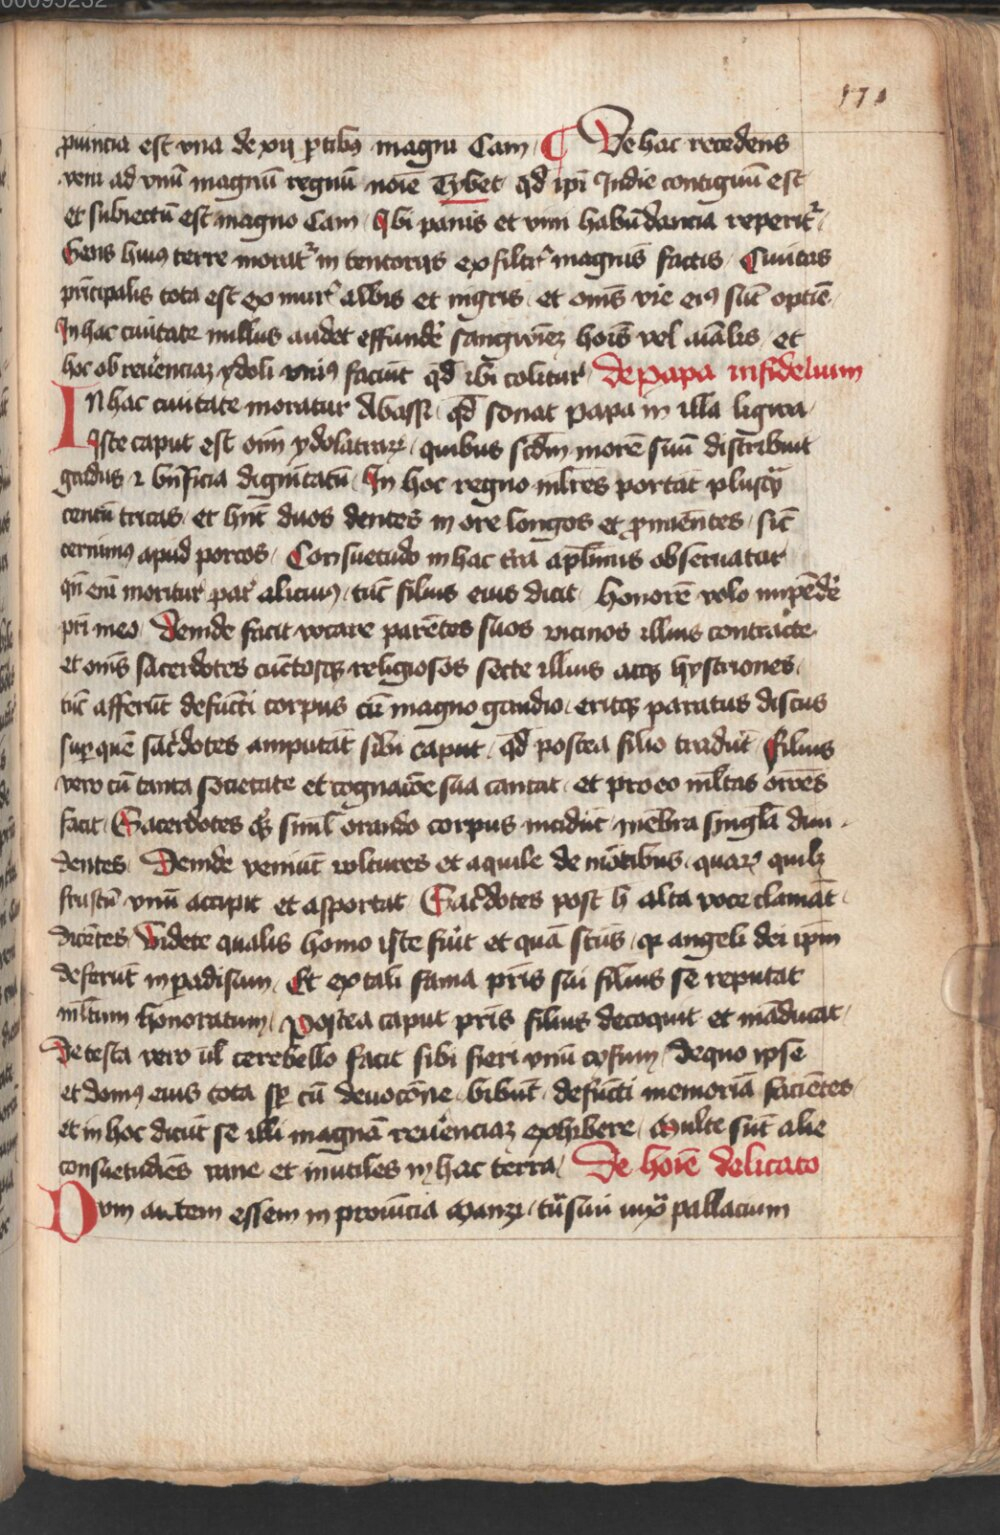 00095232
171
puincia est vna de xij ptibus magni Cam ¶ De hac recedens
veni ad vnū magnū regnū noīe Tybet qd ipī Indie contiguū est
et subiectū est magno Cam Ibi panis et vini habūdancia reperit̄
Gens huius terre morat̄ in tentorijs ex filtr̄ magnis factis Ciuitas
principalis tota est ex mur̄ albis et nigris et oms vie eius sūt optīe
In hac ciuitate nullus audet effundē sanguinez hoīs vel aīalis et
hoc ob reuēnciaz ydoli vnius faciūt qd ibi colitur De papa infidelium
In hac ciuitate moratur Abassi qd sonat papa in illa ligwa
Iste caput est oīm ydolatrarz quibus scdm morē suū distribuit
gradus et bn̄ficia dignitatū In hoc regno mlres portāt plusqʒ
centū tricas et hn̄t duos dentes in ore longos et pminētes sic̄
cernimus apud porcos Consuetudo in hac tra aplimus obseruatur
qn̄ eni moritur par̄ alicuius tūc filius eius dicit honorē volo impēdē
pri meo Deinde facit vocare parētes suos vicinos illius contracte
et oms sacerdotes cūctosqʒ religiosos secte illius atqʒ hystriones
tūc afferūt defuncti corpus cū magno gaudio eritqʒ paratus discus
sup quē sac̄dotes amputāt sibi caput qd postea filio tradūt Filius
vero cū tanta societate et cognacōe sua cantat et pro eo mltas orōes
facit Sacerdotes qʒ simīl orando corpus incidūt mēbra singla diui
dentes Deinde veniūt voltures et aquile de mōtibus quarʒ quilʒ
frustū vnū accipit et asportat Sac̄dotes post h alta voce clamāt
dicētes Videte qualis homo iste fuit et quā scūs qr angeli dei ipm
deferūt in padisum Et ex tali fama pris sui filius se reputat
mltum honoratum Postea caput pris filius decoquit et māducat
De testa vero vl cerebello facit sibi fieri vnū cyfum de quo ipse
et domus eius tota sp cū deuocōne bibūt defūcti memoriā faciētes
et in hoc dicūt se illi magnā reuēnciaz exhibere Multe sūt alie
consuetudīes vane et inutiles in hac terra De hoīe delicato
Dvm autem essem in prouīcia Manzi trāsiui iuxͣ pallacium